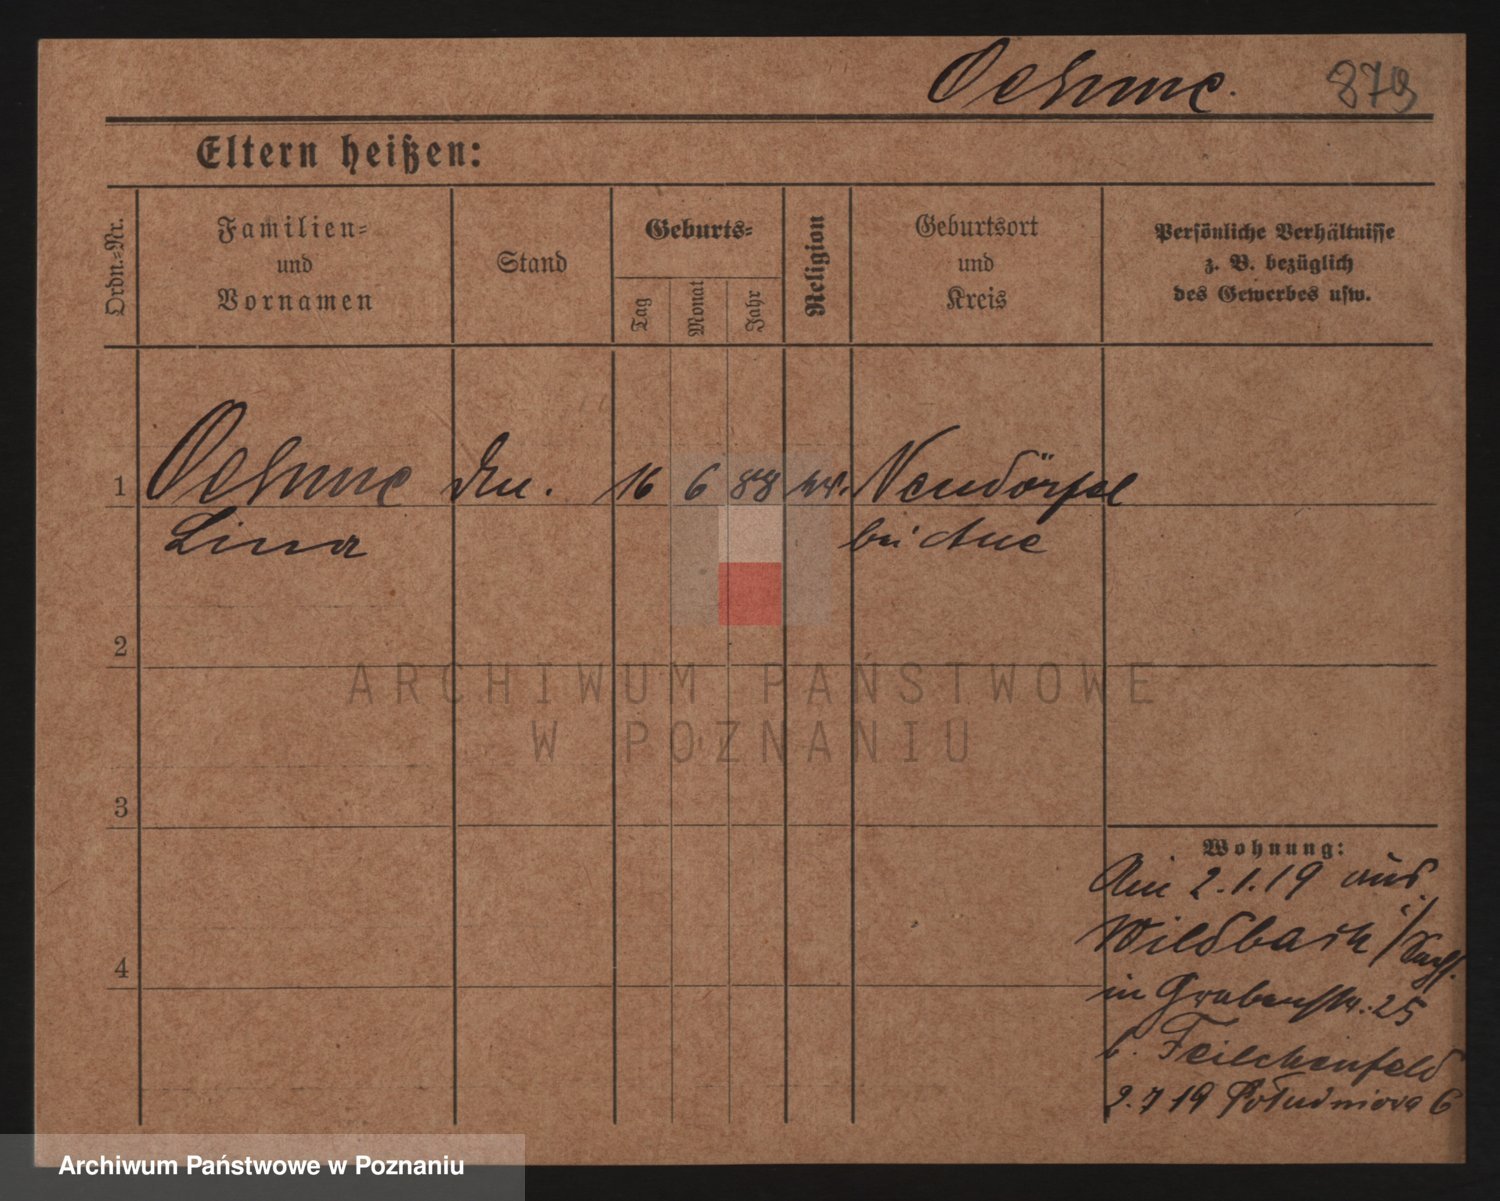 Oehme. 879
Eltern heißen:
Ordn.-Nr.
Familien-
und
Vornamen
Stand
Geburts-
Tag
Monat
Jahr
Religion
Geburtsort
und
Kreis
Persönliche Verhältnisse
z. B. bezüglich
des Gewerbes usw.
1 Oehme 16 6 88 Neudörfel
Lina bei Aue
2
3
4
Wohnung:
Am 2.1.19 aus
Wildbach i/Sachs.
in Grabenstr. 25
b. Feilchenfeld
2.7 19 Południowa 6
ARCHIWUM PAŃSTWOWE
W POZNANIU
Archiwum Państwowe w Poznaniu